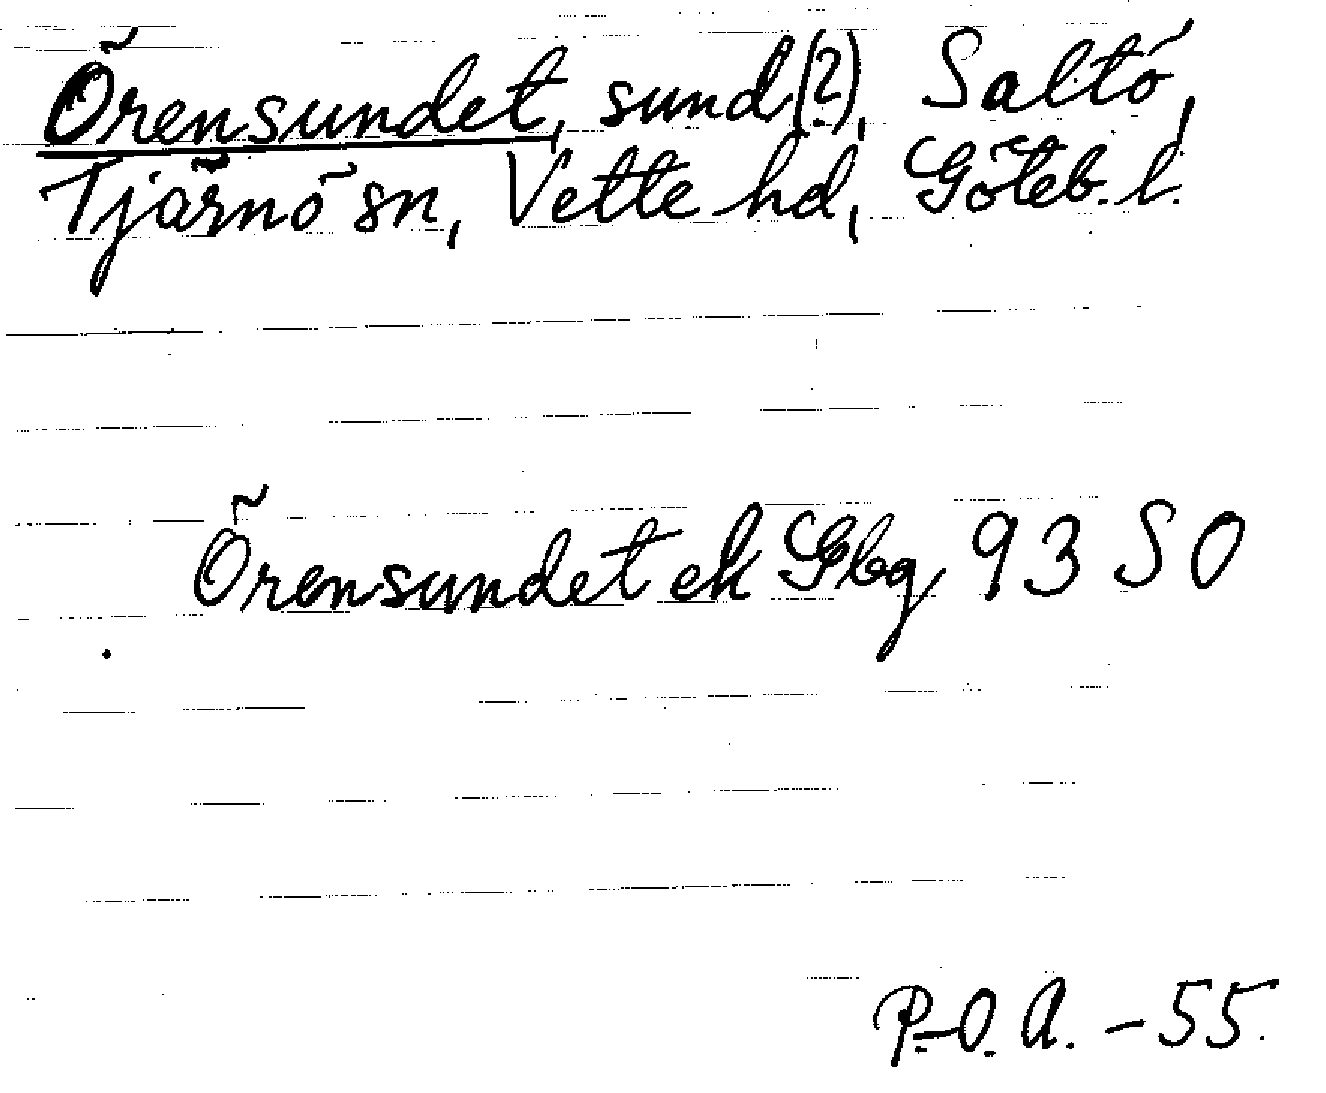 Örensundet, sund(?), Saltö,
Tjärnö sn, Vette hd, Göteb. l.
Örensundet ek Gbg 93 SO
P.-O. A. - 55.